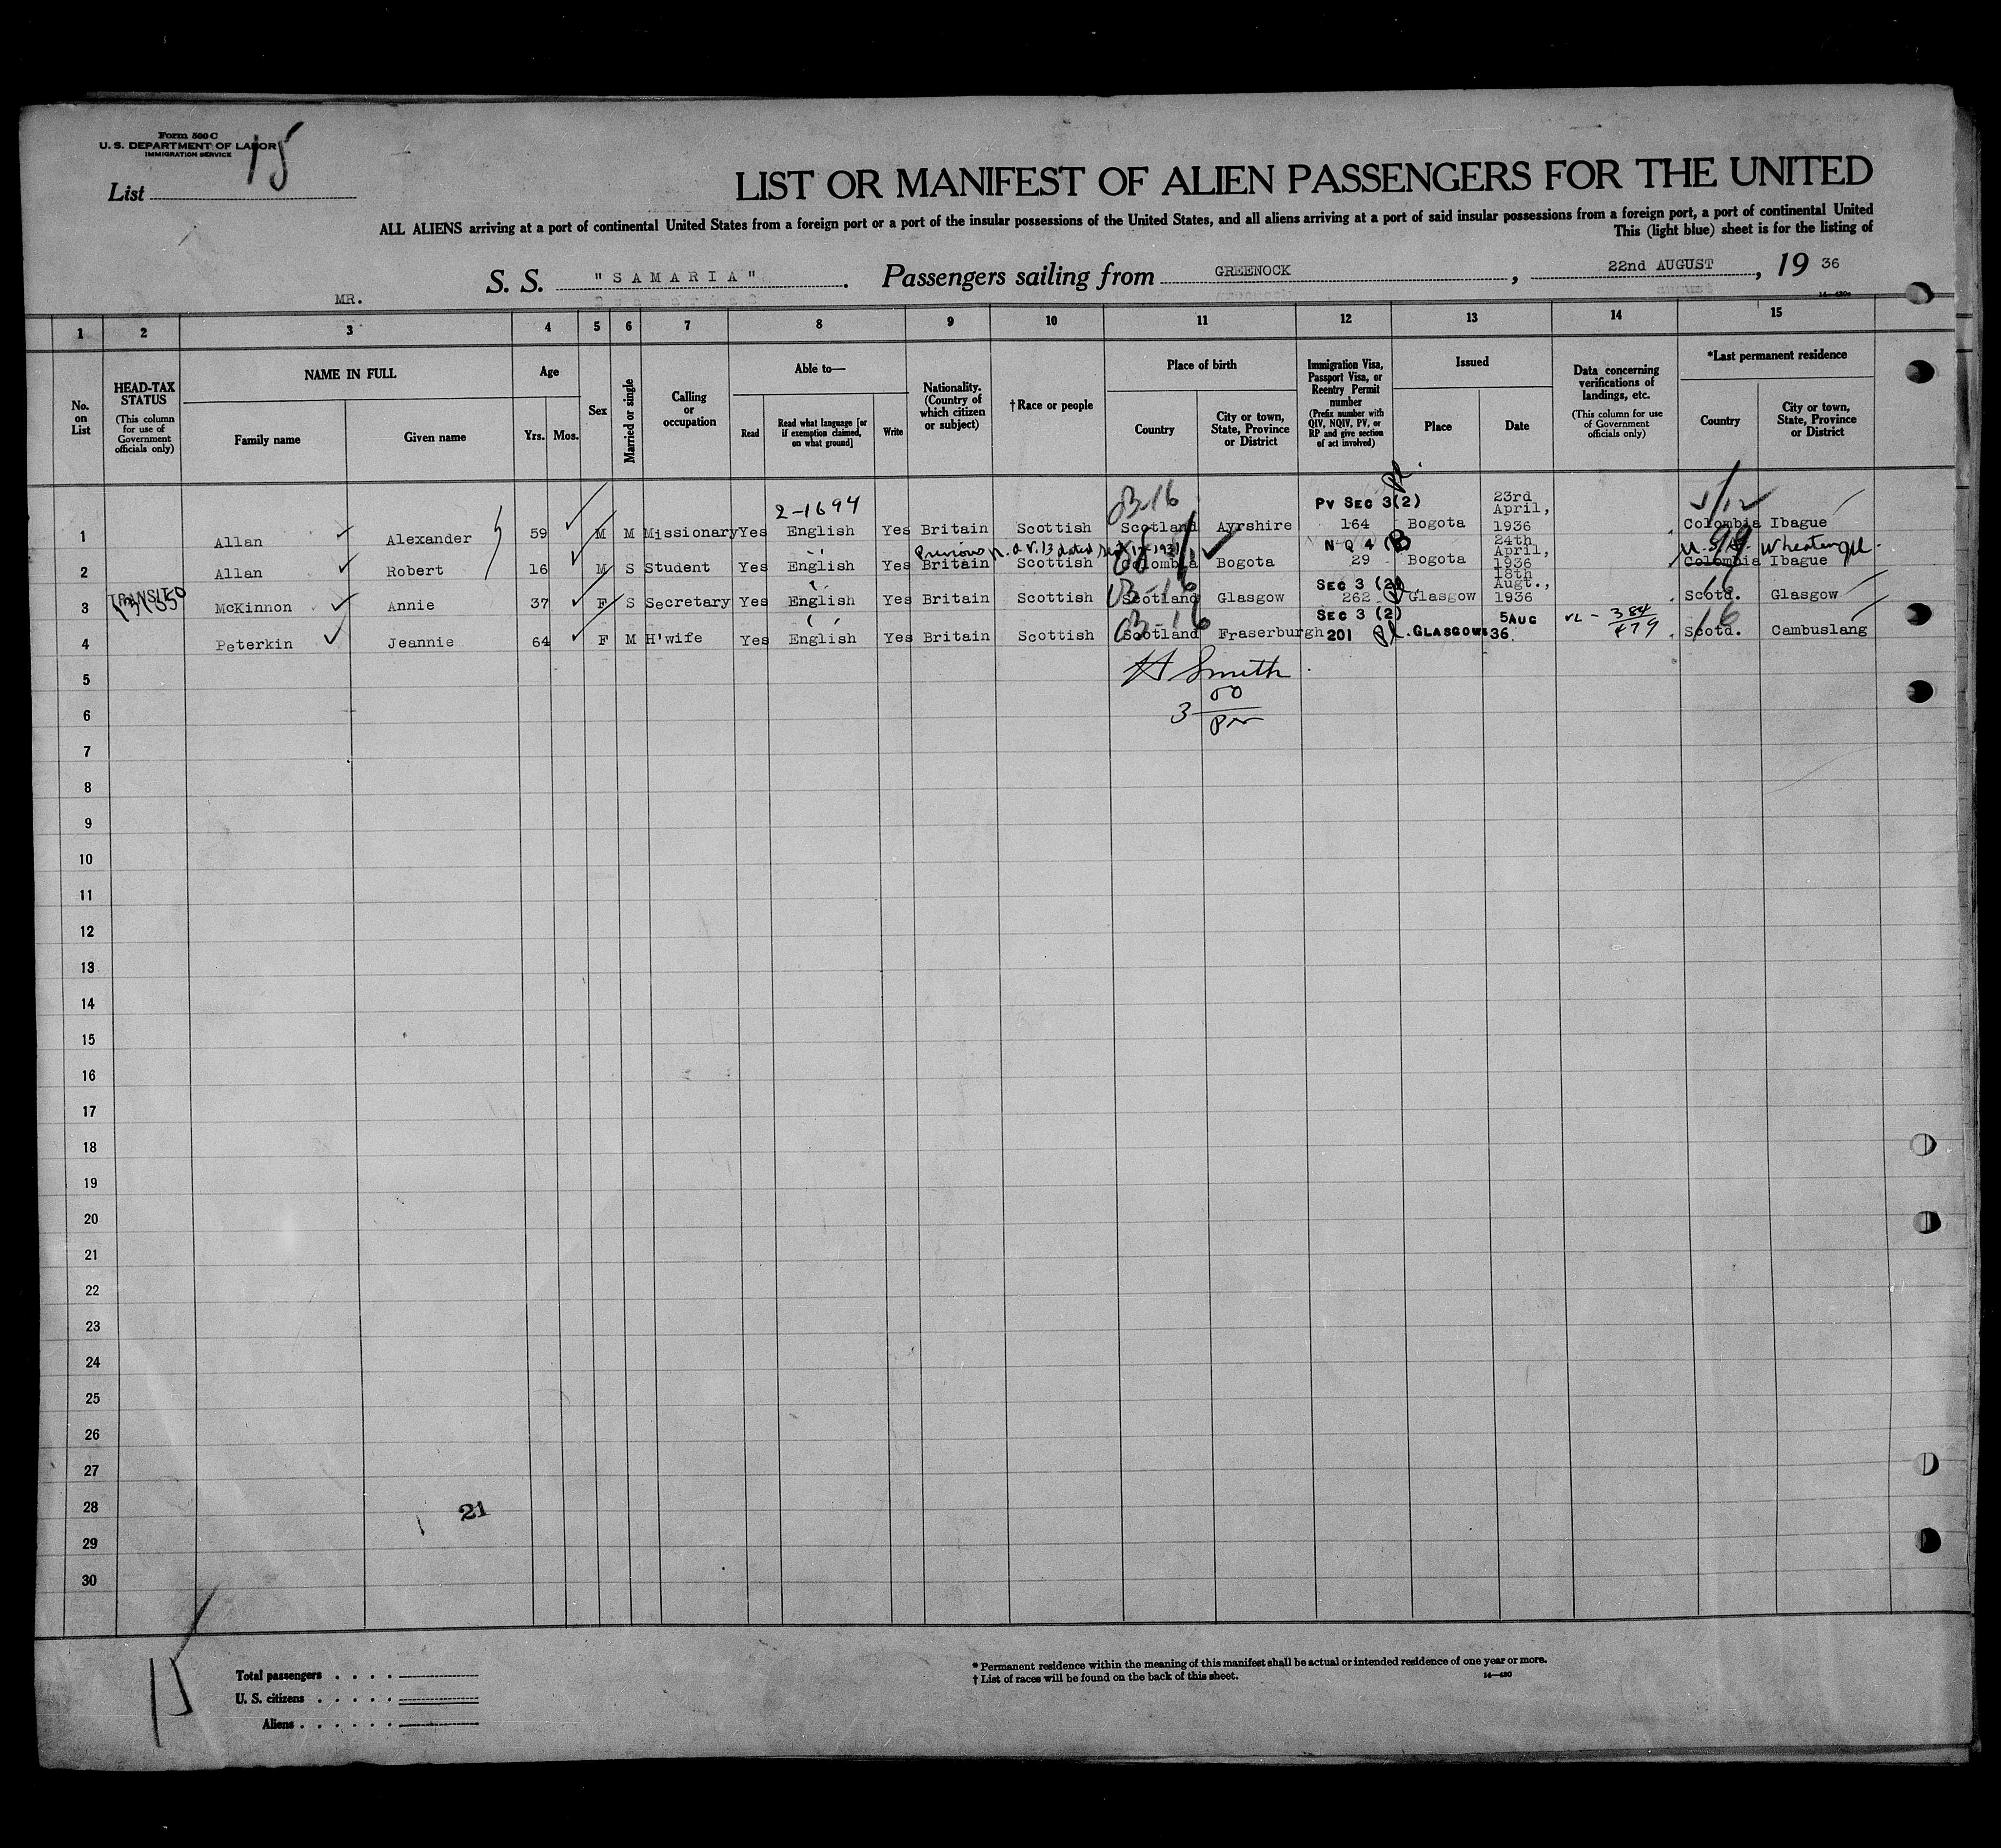 Form 500 C
U. S. DEPARTMENT OF LABOR
IMMIGRATION SERVICE
15
List
LIST OR MANIFEST OF ALIEN PASSENGERS FOR THE UNITED
ALL ALIENS arriving at a port of continental United States from a foreign port or a port of the insular possessions of the United States, and all aliens arriving at a port of said insular possessions from a foreign port, a port of continental United
This (light blue) sheet is for the listing of
S. S. "SAMARIA". Passengers sailing from GREENOCK, 22nd AUGUST, 19 36
MR.
14—430
1 2 3 4 5 6 7 8 9 10 11 12 13 14 15
No. on List
HEAD-TAX STATUS (This column for use of Government officials only)
NAME IN FULL
Family name Given name
Age
Yrs. Mos.
Sex
Married or single
Calling or occupation
Able to—
Read Read what language [or if exemption claimed, on what ground] Write
Nationality. (Country of which citizen or subject)
†Race or people
Place of birth
Country City or town, State, Province or District
Immigration Visa, Passport Visa, or Reentry Permit number (Prefix number with QIV, NQIV, PV, or RP and give section of act involved)
Issued
Place Date
Data concerning verifications of landings, etc. (This column for use of Government officials only)
*Last permanent residence
Country City or town, State, Province or District
2-1694 B-16 PV SEC 3(2) 23rd April,
1 Allan Alexander 59 M M Missionary Yes English Yes Britain Scottish Scotland Ayrshire 164 Bogota 1936 Colombia Ibague
Previous dated N Q 4 24th April, Wheaton Ill.
2 Allan Robert 16 M S Student Yes English Yes Britain Scottish Colombia Bogota 29 Bogota 1936 Colombia Ibague
TRANSIT B-16 SEC 3 (2) 18th Augt.,
3 McKinnon Annie 37 F S Secretary Yes English Yes Britain Scottish Scotland Glasgow 262 Glasgow 1936 Scotd. Glasgow
B-16 SEC 3 (2) 5 AUG VL - 384/479 16
4 Peterkin Jeannie 64 F M H'wife Yes English Yes Britain Scottish Scotland Fraserburgh 201 GLASGOW 36. Scotd. Cambuslang
5
H Smith
6
3 00
7
8
9
10
11
12
13
14
15
16
17
18
19
20
21
22
23
24
25
26
27
28
21
29
30
15
Total passengers . . . .
U. S. citizens . . . . .
Aliens . . . . . .
* Permanent residence within the meaning of this manifest shall be actual or intended residence of one year or more.
† List of races will be found on the back of this sheet.
14—430